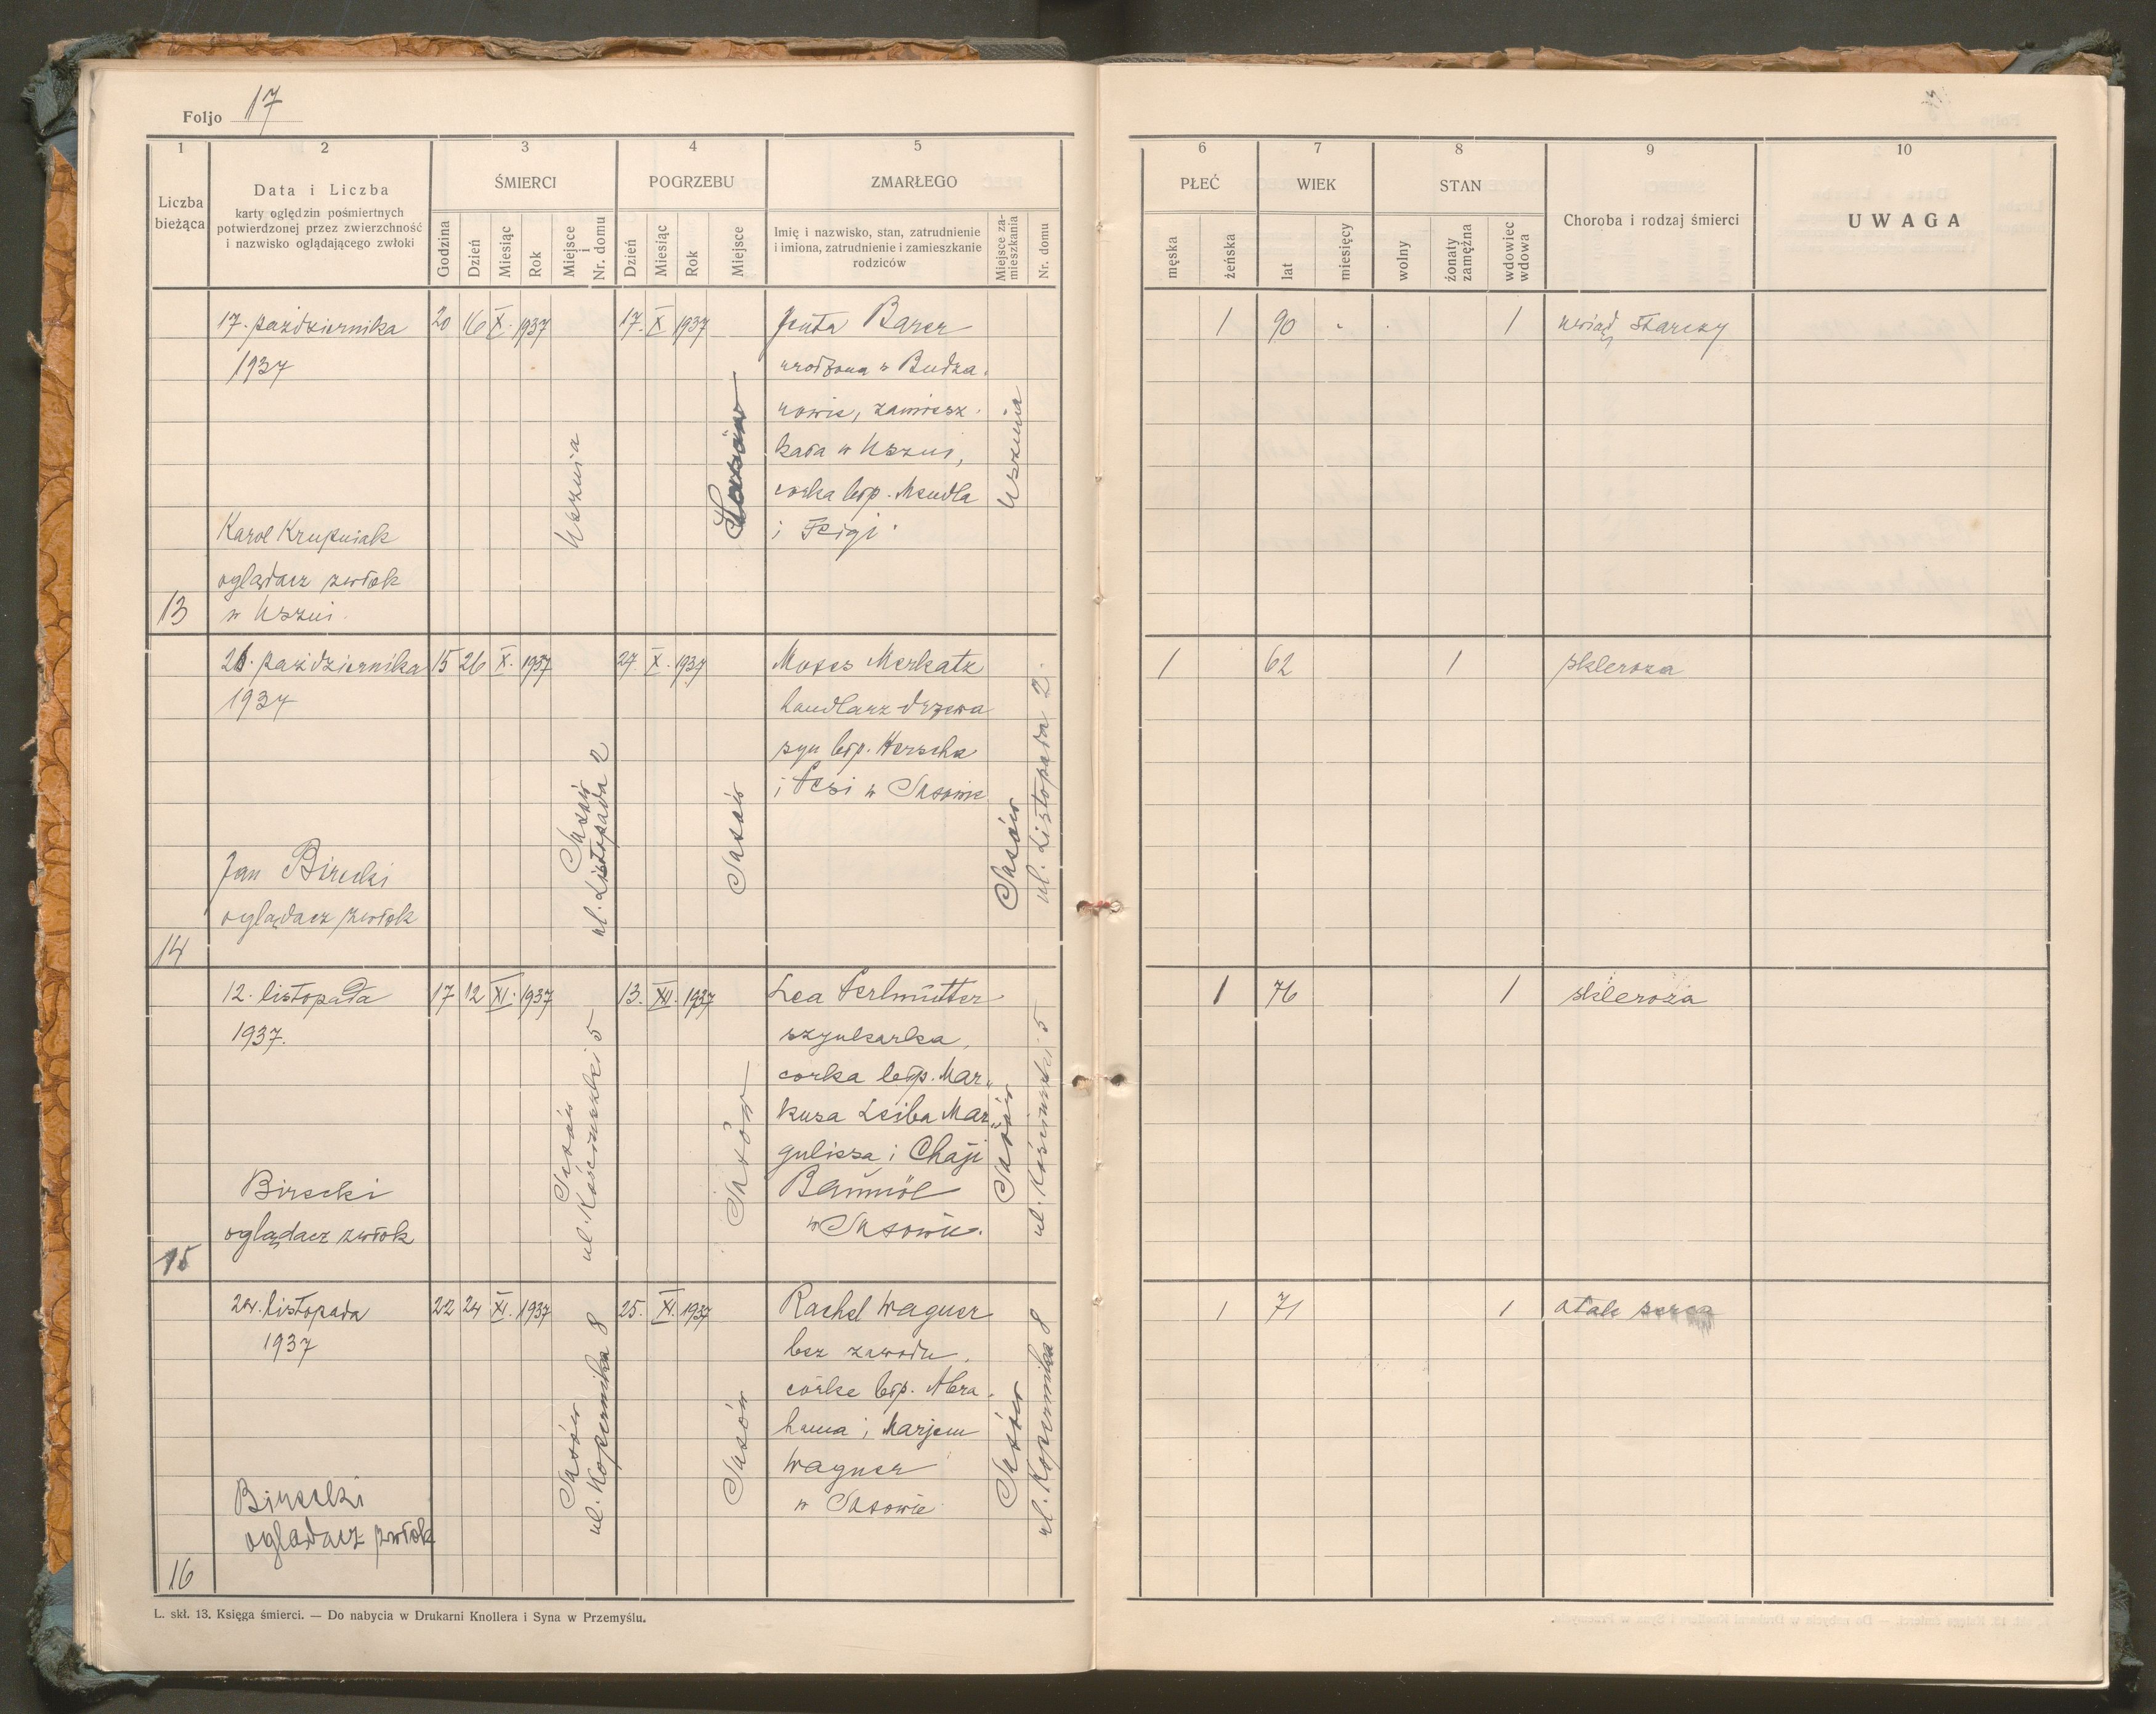 Foljo 17
1 2 3 4 5 6 7 8 9 10
Liczba bieżąca
Data i Liczba
karty oględzin pośmiertnych
potwierdzonej przez zwierzchność
i nazwisko oglądającego zwłoki
ŚMIERCI
Godzina Dzień Miesiąc Rok Miejsce i Nr. domu
POGRZEBU
Dzień Miesiąc Rok Miejsce
ZMARŁEGO
Imię i nazwisko, stan, zatrudnienie
i imiona, zatrudnienie i zamieszkanie
rodziców
Miejsce za-
mieszkania
Nr. domu
PŁEĆ
męska żeńska
WIEK
lat miesięcy
STAN
wolny żonaty zamężna wdowiec wdowa
Choroba i rodzaj śmierci
UWAGA
17. października 20 16 X. 1937 17. X 1937 Jenta Barer 1 90 1 uwiąd starczy
1937
urodzona w Budza.
nowie, zamiesz.
kała w Uszni,
corka błp. Mendla
i Feigi
Usznia
Sasów
Usznia
Karol Krupniak
oglądacz zwłok
w Uszni.
13
26. października 15 26 X. 1937 27. X. 1937 Moses Merkatz 1 62 1 skleroza
1937
handlarz drzewa
syn błp. Herscha
i Pesi w Sasowie
Sasów
ul. Listopada 2
Sasów
Sasów
ul. Listopada 2.
Jan Birecki
oglądacz zwłok
14
12. listopada 17 12 XI. 1937 13. XII. 1937 Lea Perlmutter 1 76 1 skleroza
1937.
szynkarka,
corka błp. Mar„
kusa Leiba Mar„
gulissa i Chaji
w Sasowie.
Sasów
ul. Kościuszki 5
Sasów
Sasów
ul. Kościuszki 5
Birecki
oglądacz zwłok
15
24. listopada 22 24 XI. 1937 25. XI. 1937 Rachel Wagner 1 71 1 atak serca
1937
bez zawodu,
córke błp. Abra.
hama i Marjem
Wagner
w Sasowie
Sasów
ul. Kopernika 8
Sasów
Sasów
ul. Kopernika 8
Birecki
ogladacz zwłok
16
L. skł. 13. Księga śmierci. — Do nabycia w Drukarni Knollera i Syna w Przemyślu.